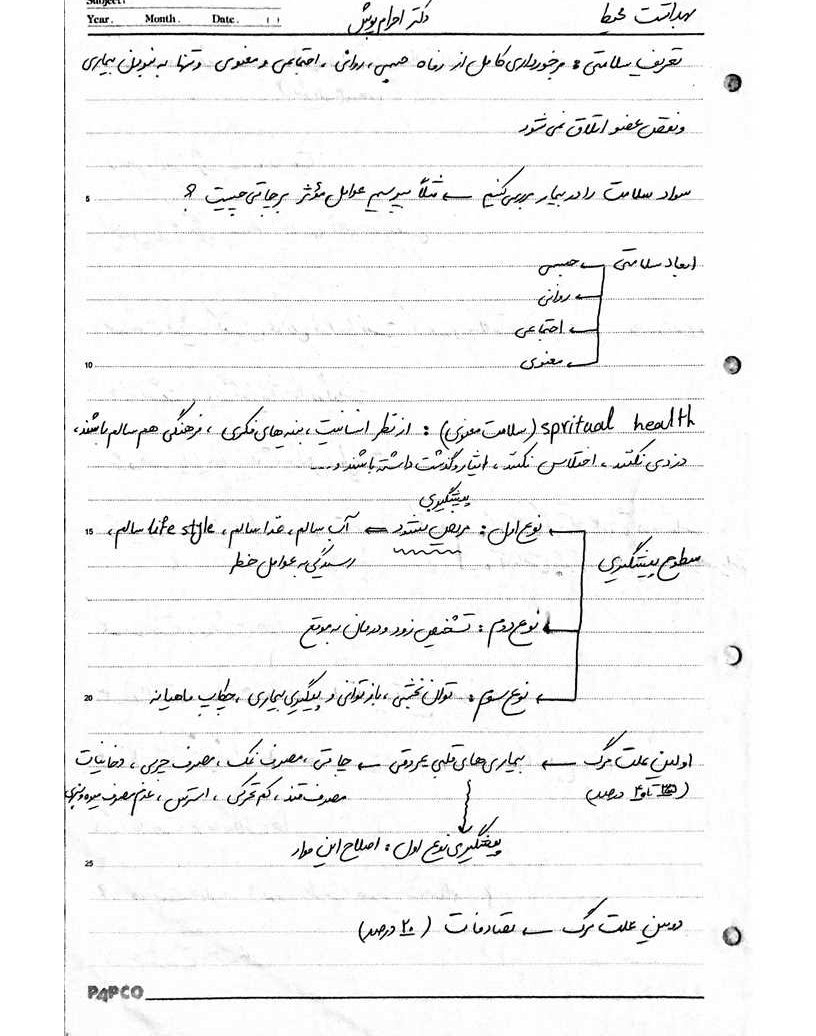 Subject:
Year. Month. Date. ( )
بهداشت محیط
دکتر احرام پوش
تعریف سلامتی: برخورداری کامل از رفاه جسمی، روانی، اجتماعی و معنوی و تنها به نبودن بیماری
و نقص عضو اتلاق نمی شود
5
سواد سلامت را در بیمار بررسی کنیم ← مثلاً بپرسیم عوامل مؤثر بر چاقی چیست؟
ابعاد سلامتی ← جسمی
← روانی
← اجتماعی
← معنوی
10
spritual health (سلامت معنوی): از نظر انسانیت، بنیه های فکری، فرهنگی هم سالم باشند،
دزدی نکنند، اختلاس نکنند، ایثار و گذشت داشته باشند و...
پیشگیری
15
نوع اول: مریض نشود ← آب سالم، غذا سالم، life style سالم،
سطوح پیشگیری
رسیدگی به عوامل خطر
نوع دوم: تشخیص زود و درمان به موقع
20
نوع سوم: توان بخشی، باز توانی و پیگیری بیماری، چکاپ ماهیانه
اولین علت مرگ ← بیماری های قلبی عروقی ← چاقی، مصرف نمک، مصرف چربی، دخانیات
(۳۵ تا ۴۰ درصد)
مصرف قند، کم تحرکی، استرس، عدم مصرف میوه و سبزی
پیشگیری نوع اول: اصلاح این موارد
25
دومین علت مرگ ← تصادفات (۲۰ درصد)
PAPCO